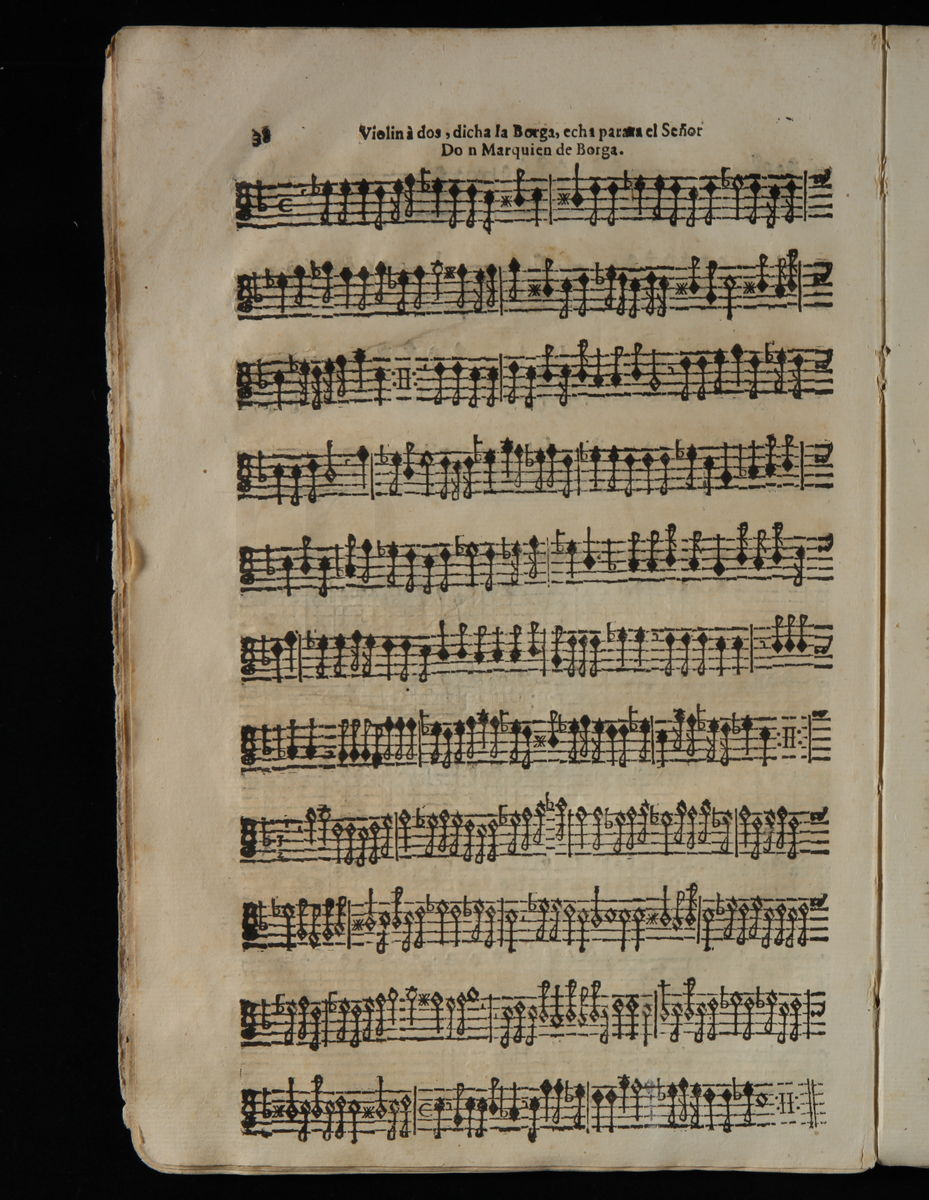 38
Violin à dos, dicha la Borga, echa para el Señor
Do n Marquien de Borga.